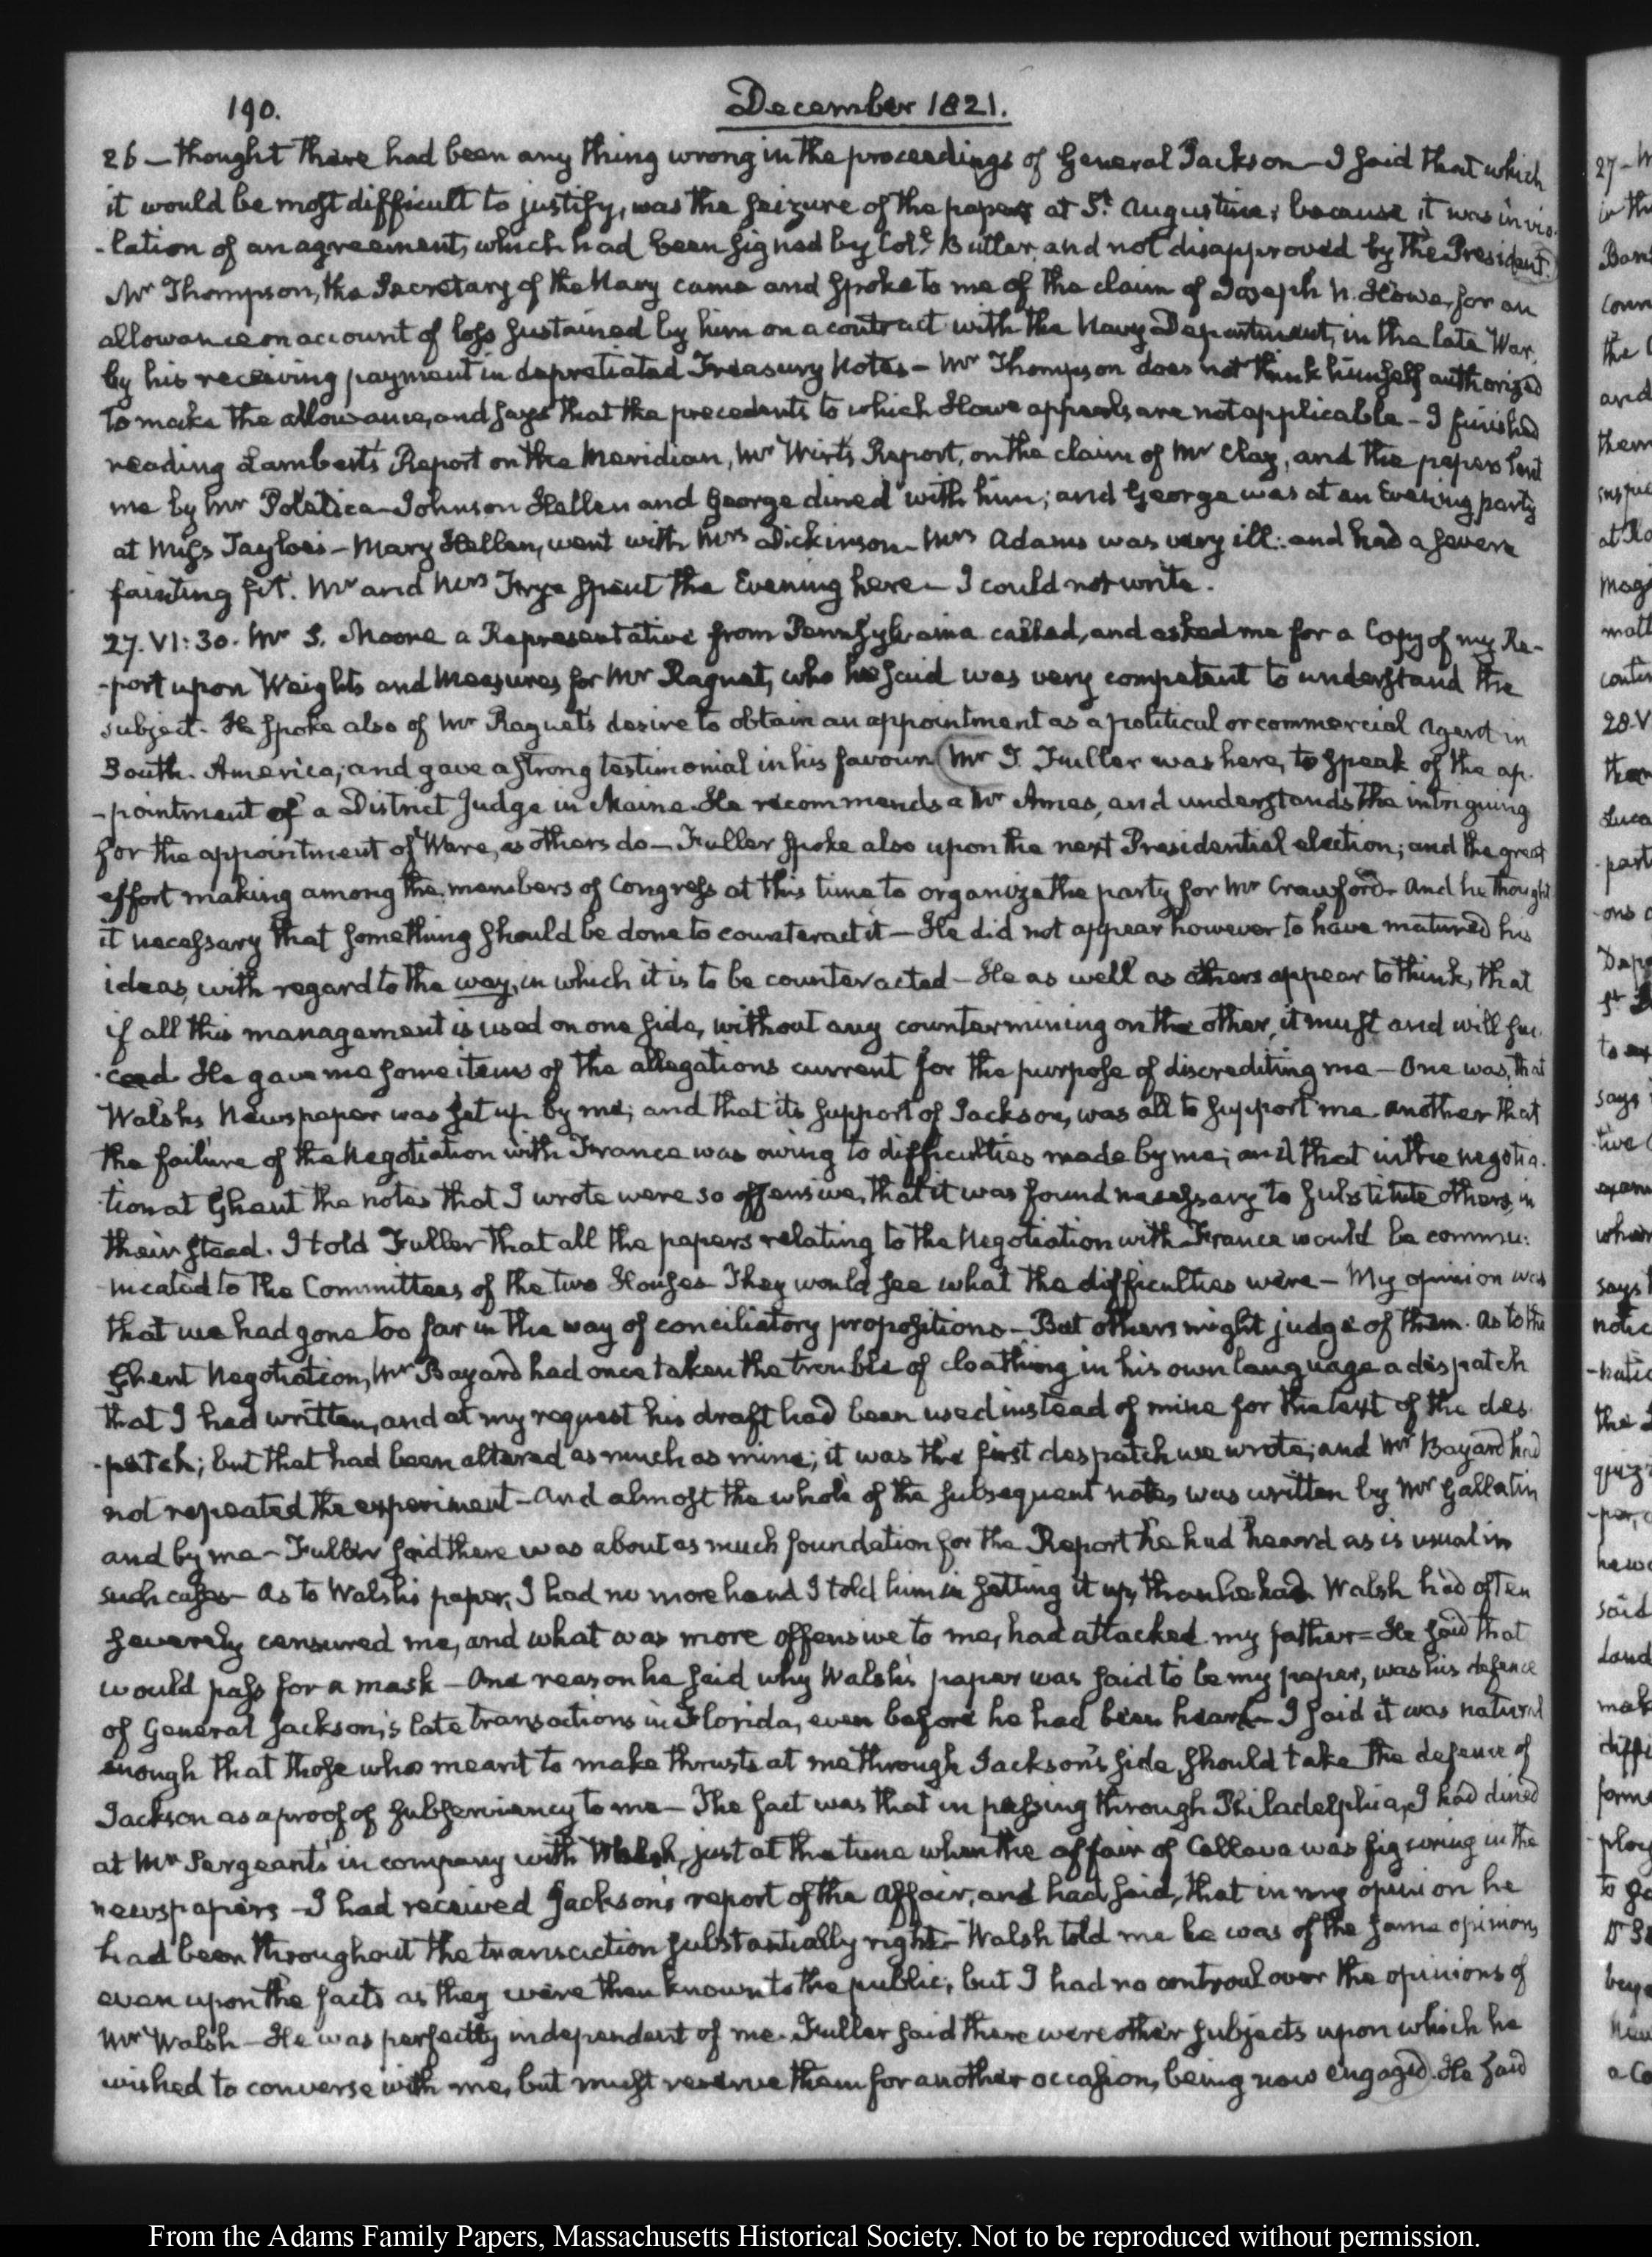 190.
December 1821.
26 — thought there had been any thing wrong in the proceedings of General Jackson — I said that which
it would be most difficult to justify, was the seizure of the papers at St. Augustine; because it was in vio-
-lation of an agreement, which had been signed by Coll. Butler, and not disapproved by the President.
Mr Thompson, the Secretary of the Navy came and spoke to me of the claim of Joseph N. Howe, for an
allowance on account of loss sustained by him on a contract with the Navy Department, in the late War,
by his receiving payment in depretiated Treasury Notes — Mr Thompson does not think himself authorized
to make the allowance, and says that the precedents to which Howe appeals are not applicable — I finished
reading Lambert's Report on the Meridian, Mr Wirt's Report, on the claim of Mr Clay, and the papers sent
me by Mr Poletica — Johnson Hellen and George dined with him; and George was at an Evening party
at Miss Tayloe's — Mary Hellen, went with Mrs Dickinson — Mrs Adams was very ill: and had a severe
fainting fit. Mr and Mrs Frye spent the Evening here — I could not write.
27. VI:30. Mr S. Moore a Representative from Pennsylvania called, and asked me for a Copy of my Re-
-port upon Weights and Measures for Mr Raguet, who he said was very competent to understand the
subject. He spoke also of Mr Raguet's desire to obtain an appointment as a political or commercial Agent in
South America; and gave a strong testimonial in his favour (Mr T. Fuller was here, to speak of the ap-
-pointment of a District Judge in Maine. He recommends a Mr Ames, and understands the intriguing
for the appointment of Ware, as others do — Fuller spoke also upon the next Presidential election; and the great
effort making among the members of Congress at this time to organize the party for Mr Crawford — And he thought
it necessary that something should be done to counteract it — He did not appear however to have matured his
ideas, with regard to the way, in which it is to be counteracted — He as well as others appear to think, that
if all this management is used on one side, without any countermining on the other, it must and will suc-
-ceed. He gave me some items of the allegations current for the purpose of discrediting me — One was, that
Walsh's Newspaper was set up by me; and that its support of Jackson, was all to support me. Another that
the failure of the Negotiation with France was owing to difficulties made by me; and that in the negotia-
-tion at Ghent the notes that I wrote were so offensive, that it was found necessary to substitute others, in
their stead. I told Fuller that all the papers relating to the Negotiation with France would be commu-
-nicated to the Committees of the two Houses — They would see what the difficulties were — My opinion was
that we had gone too far in the way of conciliatory propositions — But others might judge of them. As to the
Ghent Negotiation, Mr Bayard had once taken the trouble of cloathing in his own language a despatch
that I had written, and at my request his draft had been used instead of mine for the text of the des-
-patch; but that had been altered as much as mine; it was the first despatch we wrote; and Mr Bayard had
not repeated the experiment — And almost the whole of the subsequent notes, was written by Mr Gallatin
and by me — Fuller said there was about as much foundation for the Report he had heard as is usual in
such cases — As to Walsh's paper, I had no more hand I told him in setting it up, than he had. Walsh had often
severely censured me, and what was more offensive to me, had attacked my father — He said that
would pass for a mask — One reason he said why Walsh's paper was said to be my paper, was his defence
of General Jackson's late transactions in Florida, even before he had been heard — I said it was natural
enough that those who meant to make thrusts at me through Jackson's side, should take the defence of
Jackson as a proof of subserviency to me — The fact was that in passing through Philadelphia, I had dined
at Mr Sergeant's in company with Walsh, just at the time when the affair of Callava was figuring in the
newspapers — I had received Jackson's report of the Affair, and had said, that in my opinion he
had been throughout the transaction substantially right — Walsh told me he was of the same opinion,
even upon the facts as they were then known to the public; but I had no controul over the opinions of
Mr Walsh — He was perfectly independent of me. Fuller said there were other subjects upon which he
wished to converse with me, but must reserve them for another occasion, being now engaged). He said
From the Adams Family Papers, Massachusetts Historical Society. Not to be reproduced without permission.